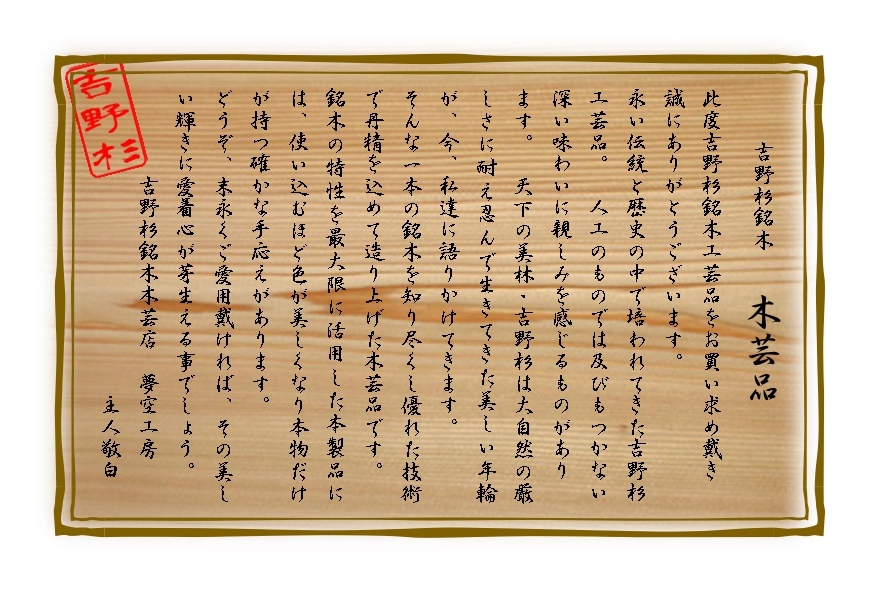 吉野杉銘木 木芸品
此度吉野杉銘木工芸品をお買い求め戴き
誠にありがとうございます。
永い伝統と歴史の中で培われてきた吉野杉
工芸品。 人工のものでは及びもつかない
深い味わいに親しみを感じるものがあり
ます。 天下の美林・吉野杉は大自然の厳
しさに耐え忍んで生きてきた美しい年輪
が、今、私達に語りかけてきます。
そんな一本の銘木を知り尽くし優れた技術
で丹精を込めて造り上げた木芸品です。
銘木の特性を最大限に活用した本製品に
は、使い込むほど色が美しくなり本物だけ
が持つ確かな手応えがあります。
どうぞ、末永くご愛用戴ければ、その美し
い輝きに愛着心が芽生える事でしょう。
吉野杉銘木木芸店 夢空工房
主人敬白
吉野杉